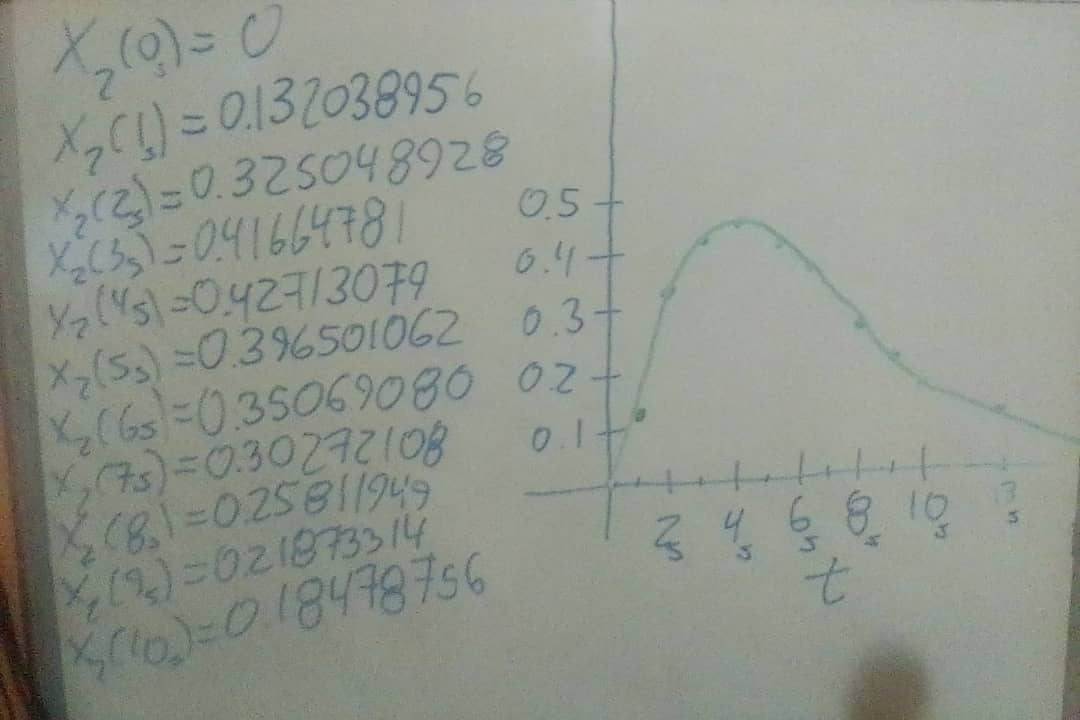 X₂(0s) = 0
X₂(1s) = 0.132038956
X₂(2s) = 0.325048928
X₂(3s) = 0.41664781
X₂(4s) = 0.42713079
X₂(5s) = 0.396501062
X₂(6s) = 0.35069080
X₂(7s) = 0.30272108
X₂(8s) = 0.25811949
X₂(9s) = 0.21873314
X₂(10s) = 0.18478756
0.5
0.4
0.3
0.2
0.1
2s 4s 6s 8s 10s
t